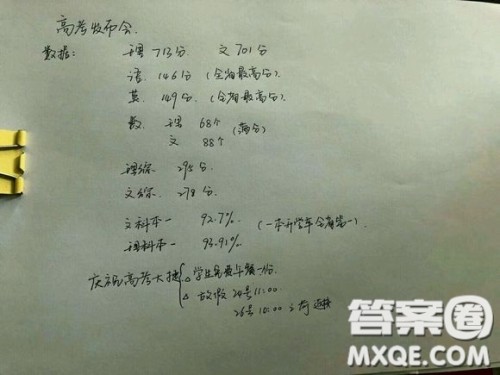 高考发布会.
数据: 理 713分 文 701分
语 146分 (全省最高分).
英. 149分 (全省最高分).
数. 理 68个 (满分)
文 88个
理综 295分.
文综 278分.
文科本一 92.7%
(一本升学率全省第一).
理科本一 93.91%
庆祝高考大捷
△ 学生免费午餐一份.
△ 放假 24号11:00
26号 10:00 之前
答案圈
MXQE.COM